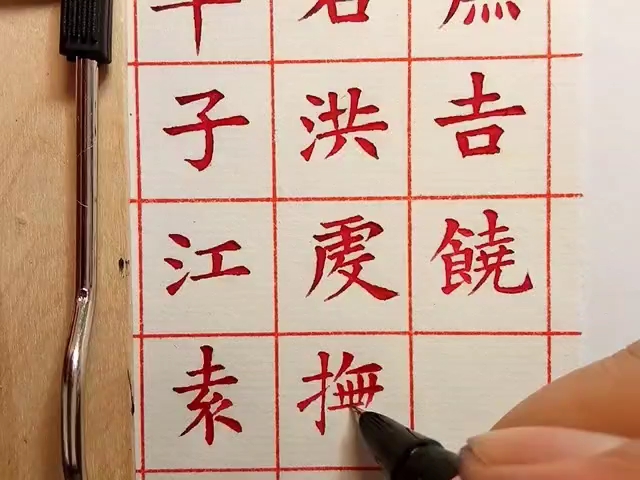 子洪吉
江虔饒
袁撫